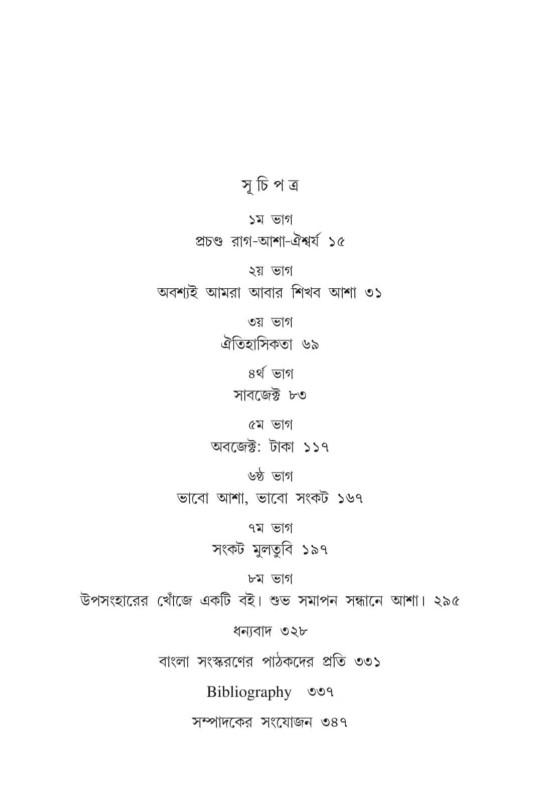 সূচিপত্র
১ম ভাগ
প্রচণ্ড রাগ-আশা-ঐশ্বর্য ১৫
২য় ভাগ
অবশ্যই আমরা আবার শিখব আশা ৩১
৩য় ভাগ
ঐতিহাসিকতা ৬৯
৪র্থ ভাগ
সাবজেক্ট ৮৩
৫ম ভাগ
অবজেক্ট: টাকা ১১৭
৬ষ্ঠ ভাগ
ভাবো আশা, ভাবো সংকট ১৬৭
৭ম ভাগ
সংকট মুলতুবি ১৯৭
৮ম ভাগ
উপসংহারের খোঁজে একটি বই। শুভ সমাপন সন্ধানে আশা। ২৯৫
ধন্যবাদ ৩২৮
বাংলা সংস্করণের পাঠকদের প্রতি ৩৩১
Bibliography ৩৩৭
সম্পাদকের সংযোজন ৩৪৭